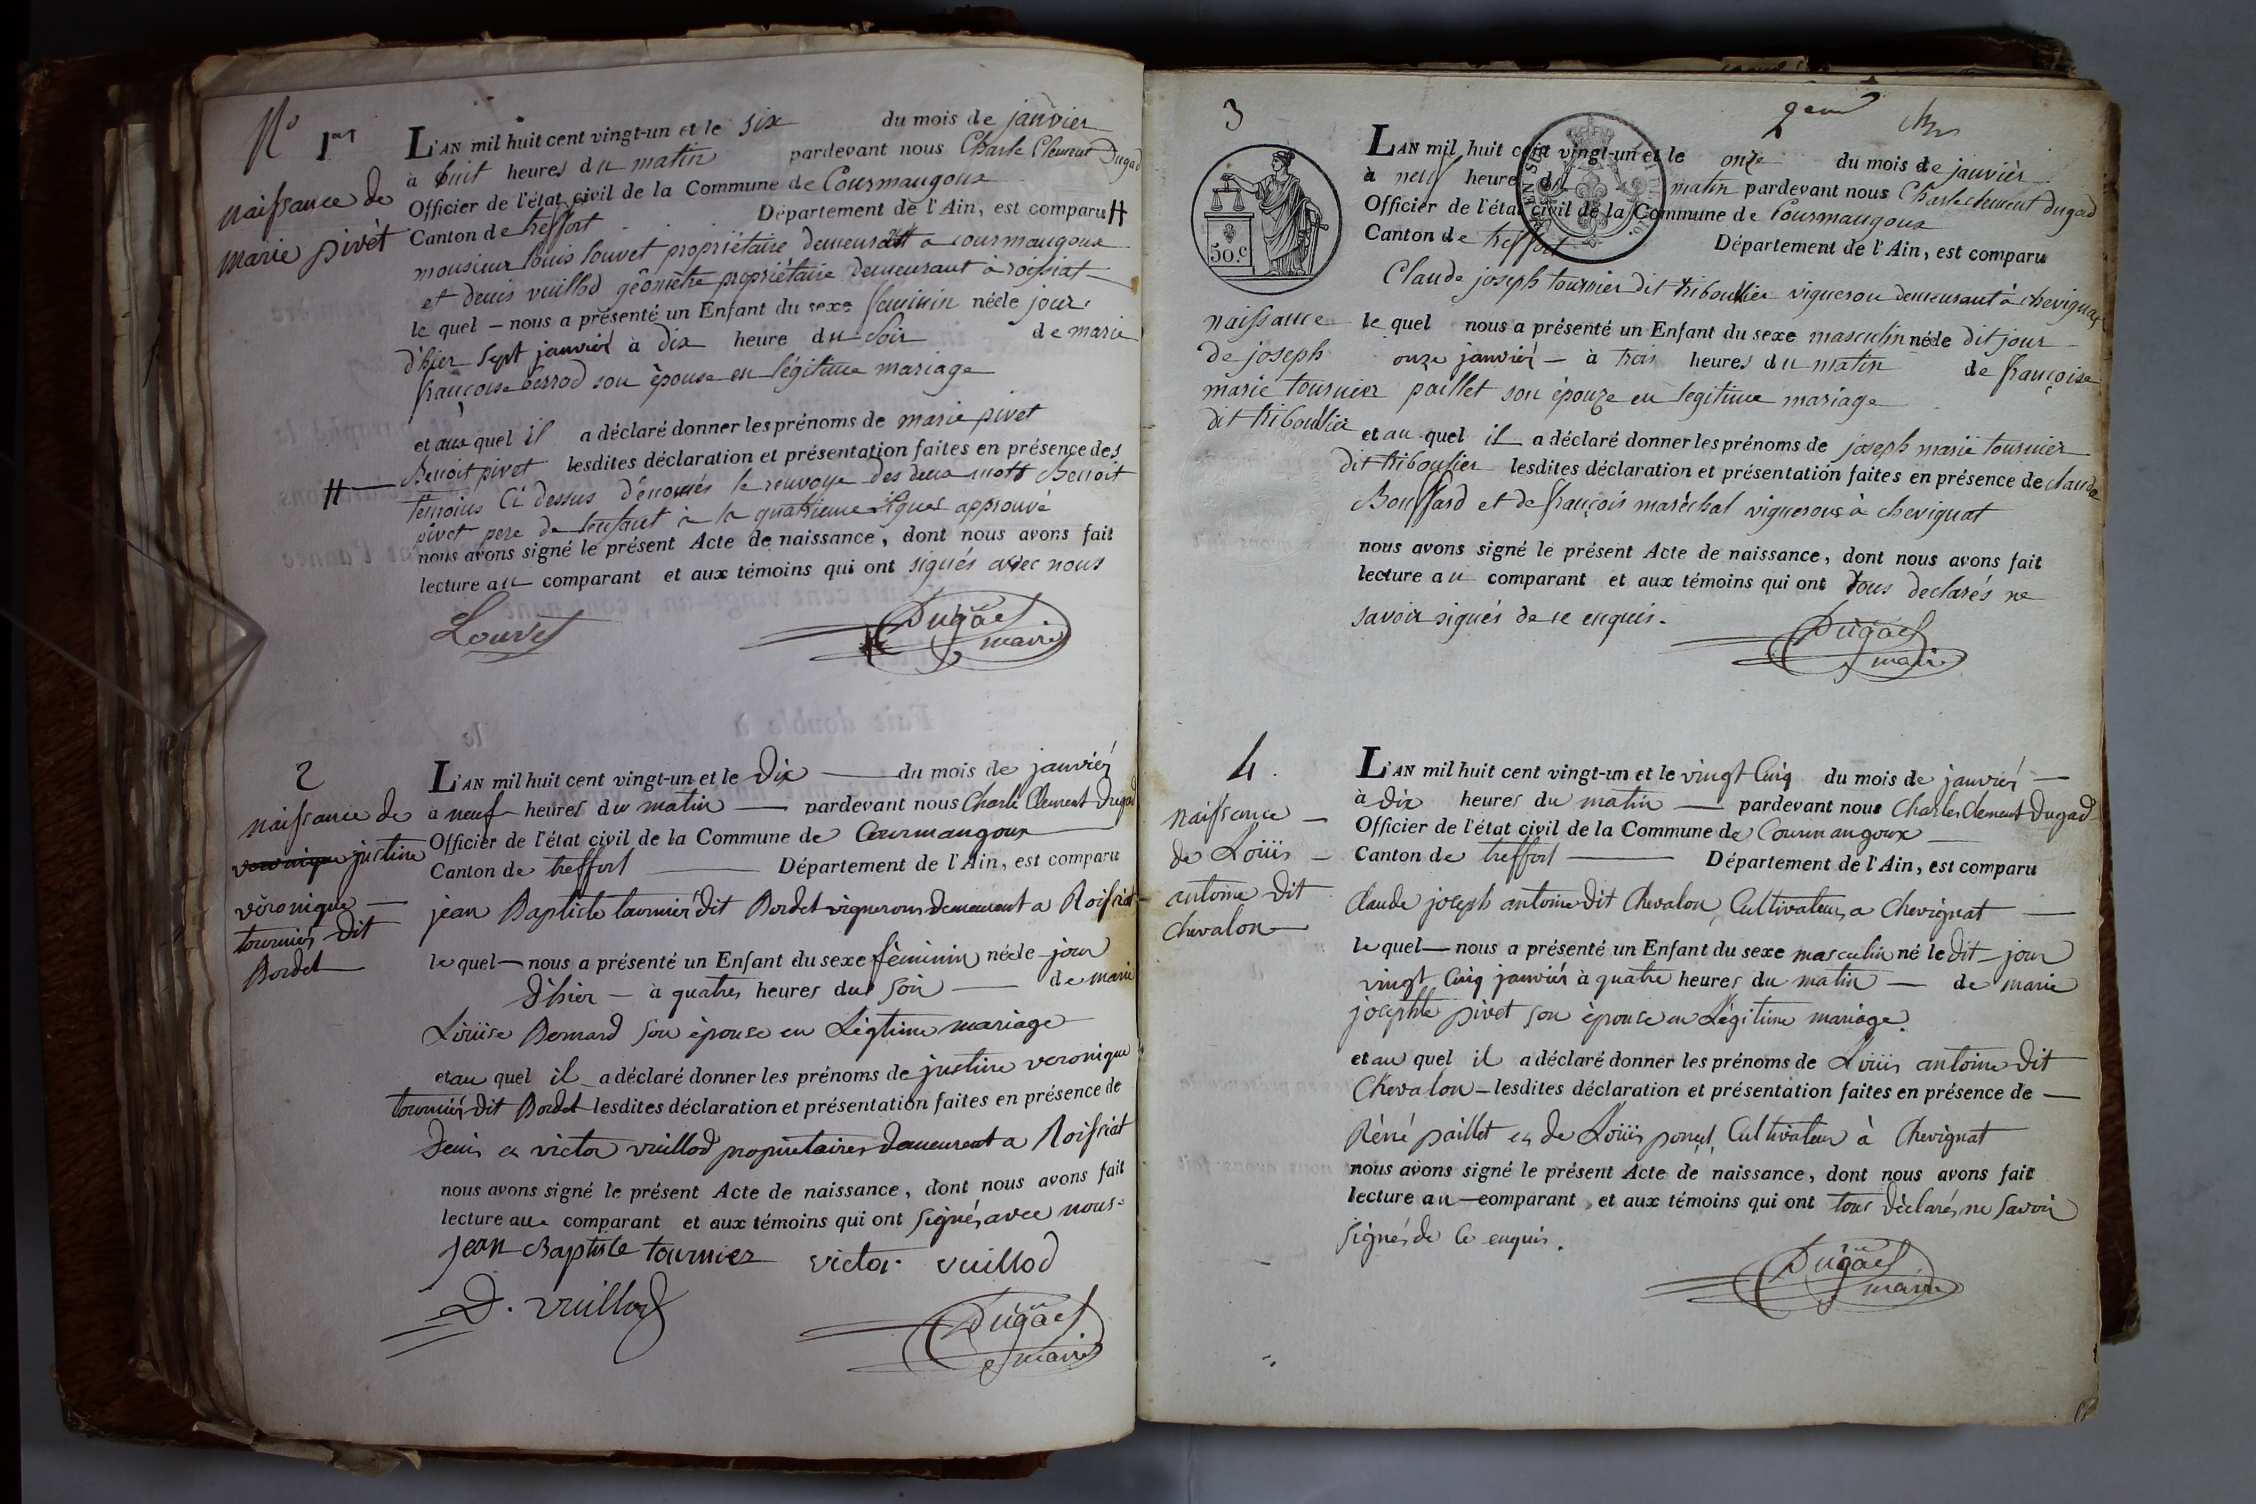 N° 1er
naissance de
marie pivèt
L'AN mil huit cent vingt-un et le six du mois de janvier
à huit heures du matin pardevant nous Charle Clement Dugad
Officier de l'état civil de la Commune de Courmangoux
Canton de treffort Département de l'Ain, est comparu #
monsieur louis louvet propriétaire demeurant a courmangoux
et denis vuillod géomètre propriétaire demeurant à roissiat
le quel — nous a présenté un Enfant du sexe feminin née le jour
d'hier sept janvier à dix heure du soir de marie
françoise berrod son épouse en légitime mariage
et au quel il a déclaré donner les prénoms de marie pivet
# Benoit pivet lesdites déclaration et présentation faites en présence des
témoins Ci dessus dénomés le renvoye des deux mots Benoit
pivet pere de lenfant à la quatrieme lignes approuvé
nous avons signé le présent Acte de naissance, dont nous avons fait
lecture au comparant et aux témoins qui ont signés avec nous
Louvet Dugad
maire
2
naissance de
veronique justine
véronique
tournier dit
Bordet
L'AN mil huit cent vingt-un et le Dix du mois de janvier
à neuf heures du matin pardevant nous Charle Clement Dugad
Officier de l'état civil de la Commune de Courmangoux
Canton de treffort Département de l'Ain, est comparu
jean Baptiste tournier dit Bordet vigneron demeurant a Roissiat
le quel — nous a présenté un Enfant du sexe féminin née le jour
d'hier — à quatres heures du soir — de marie
Loüise Bernard son épouse en Légtime mariage
et au quel il a déclaré donner les prénoms de justine veronique
tournier dit Bordet lesdites déclaration et présentation faites en présence de
Denis et victor vuillod propriétaires demeurent a Roissiat
nous avons signé le présent Acte de naissance, dont nous avons fait
lecture au comparant et aux témoins qui ont signés avec nous
jean Baptiste tournier victor vuillod
D. vuillod
Dugad
maire
3
50.c
naissance
de joseph
marie tournier
dit tiboullier
L'AN mil huit cent vingt-un et le onze du mois de janvier
à neuf heures du matin pardevant nous Charle clement dugad
Officier de l'état civil de la Commune de Courmangoux
Canton de treffort Département de l'Ain, est comparu
Claude joseph tournier dit tiboullier vigneron demeurant à chevignat
le quel nous a présenté un Enfant du sexe masculin né le dit jour
onze janvier — à trois heures du matin de françoise
paillet son épouze en legitime mariage
et au quel il a déclaré donner les prénoms de joseph marie tournier
dit tiboulier lesdites déclaration et présentation faites en présence de claude
Bouffard et de françois maréchal vignerons à chevignat
nous avons signé le présent Acte de naissance, dont nous avons fait
lecture au comparant et aux témoins qui ont tous declarés ne
savoir signés de ce enquis.
Dugad
maire
4.
naissance
de Loüis
antoine dit
chevalon
L'AN mil huit cent vingt-un et le vingt Cinq du mois de janvier
à dix heures du matin pardevant nous Charles Clement Dugad
Officier de l'état civil de la Commune de Courmangoux
Canton de treffort Département de l'Ain, est comparu
Claude joseph antoine dit Chevalon Cultivateur a Chevignat
le quel — nous a présenté un Enfant du sexe masculin né le dit jour
vingt Cinq janvier à quatre heures du matin — de marie
josephte pivet son épouse en Légitime mariage.
et au quel il a déclaré donner les prénoms de Loüis antoine dit
Chevalon — lesdites déclaration et présentation faites en présence de —
Réné paillet et de Loüis poncet Cultivateur à Chevignat
nous avons signé le présent Acte de naissance, dont nous avons fait
lecture au comparant, et aux témoins qui ont tous déclarés ne savoir
signés de ce enquis.
Dugad
maire